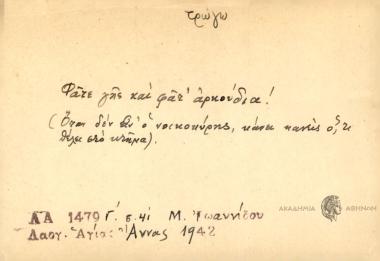 τρώγω
Φᾶτε γῆς καὶ φᾶτ' ἀρκούδια!
(Ὅταν δὲν εἶν' ὁ νοικοκύρης, κάνει κανεὶς ὅ,τι
θέλει στὸ κτῆμα).
ΛΑ 1479 Γ΄. σ. 41 Μ. Ἰωαννίδου
Λαογ. Ἁγίας Ἄννας 1942
ΑΚΑΔΗΜΙΑ ΑΘΗΝΩΝ